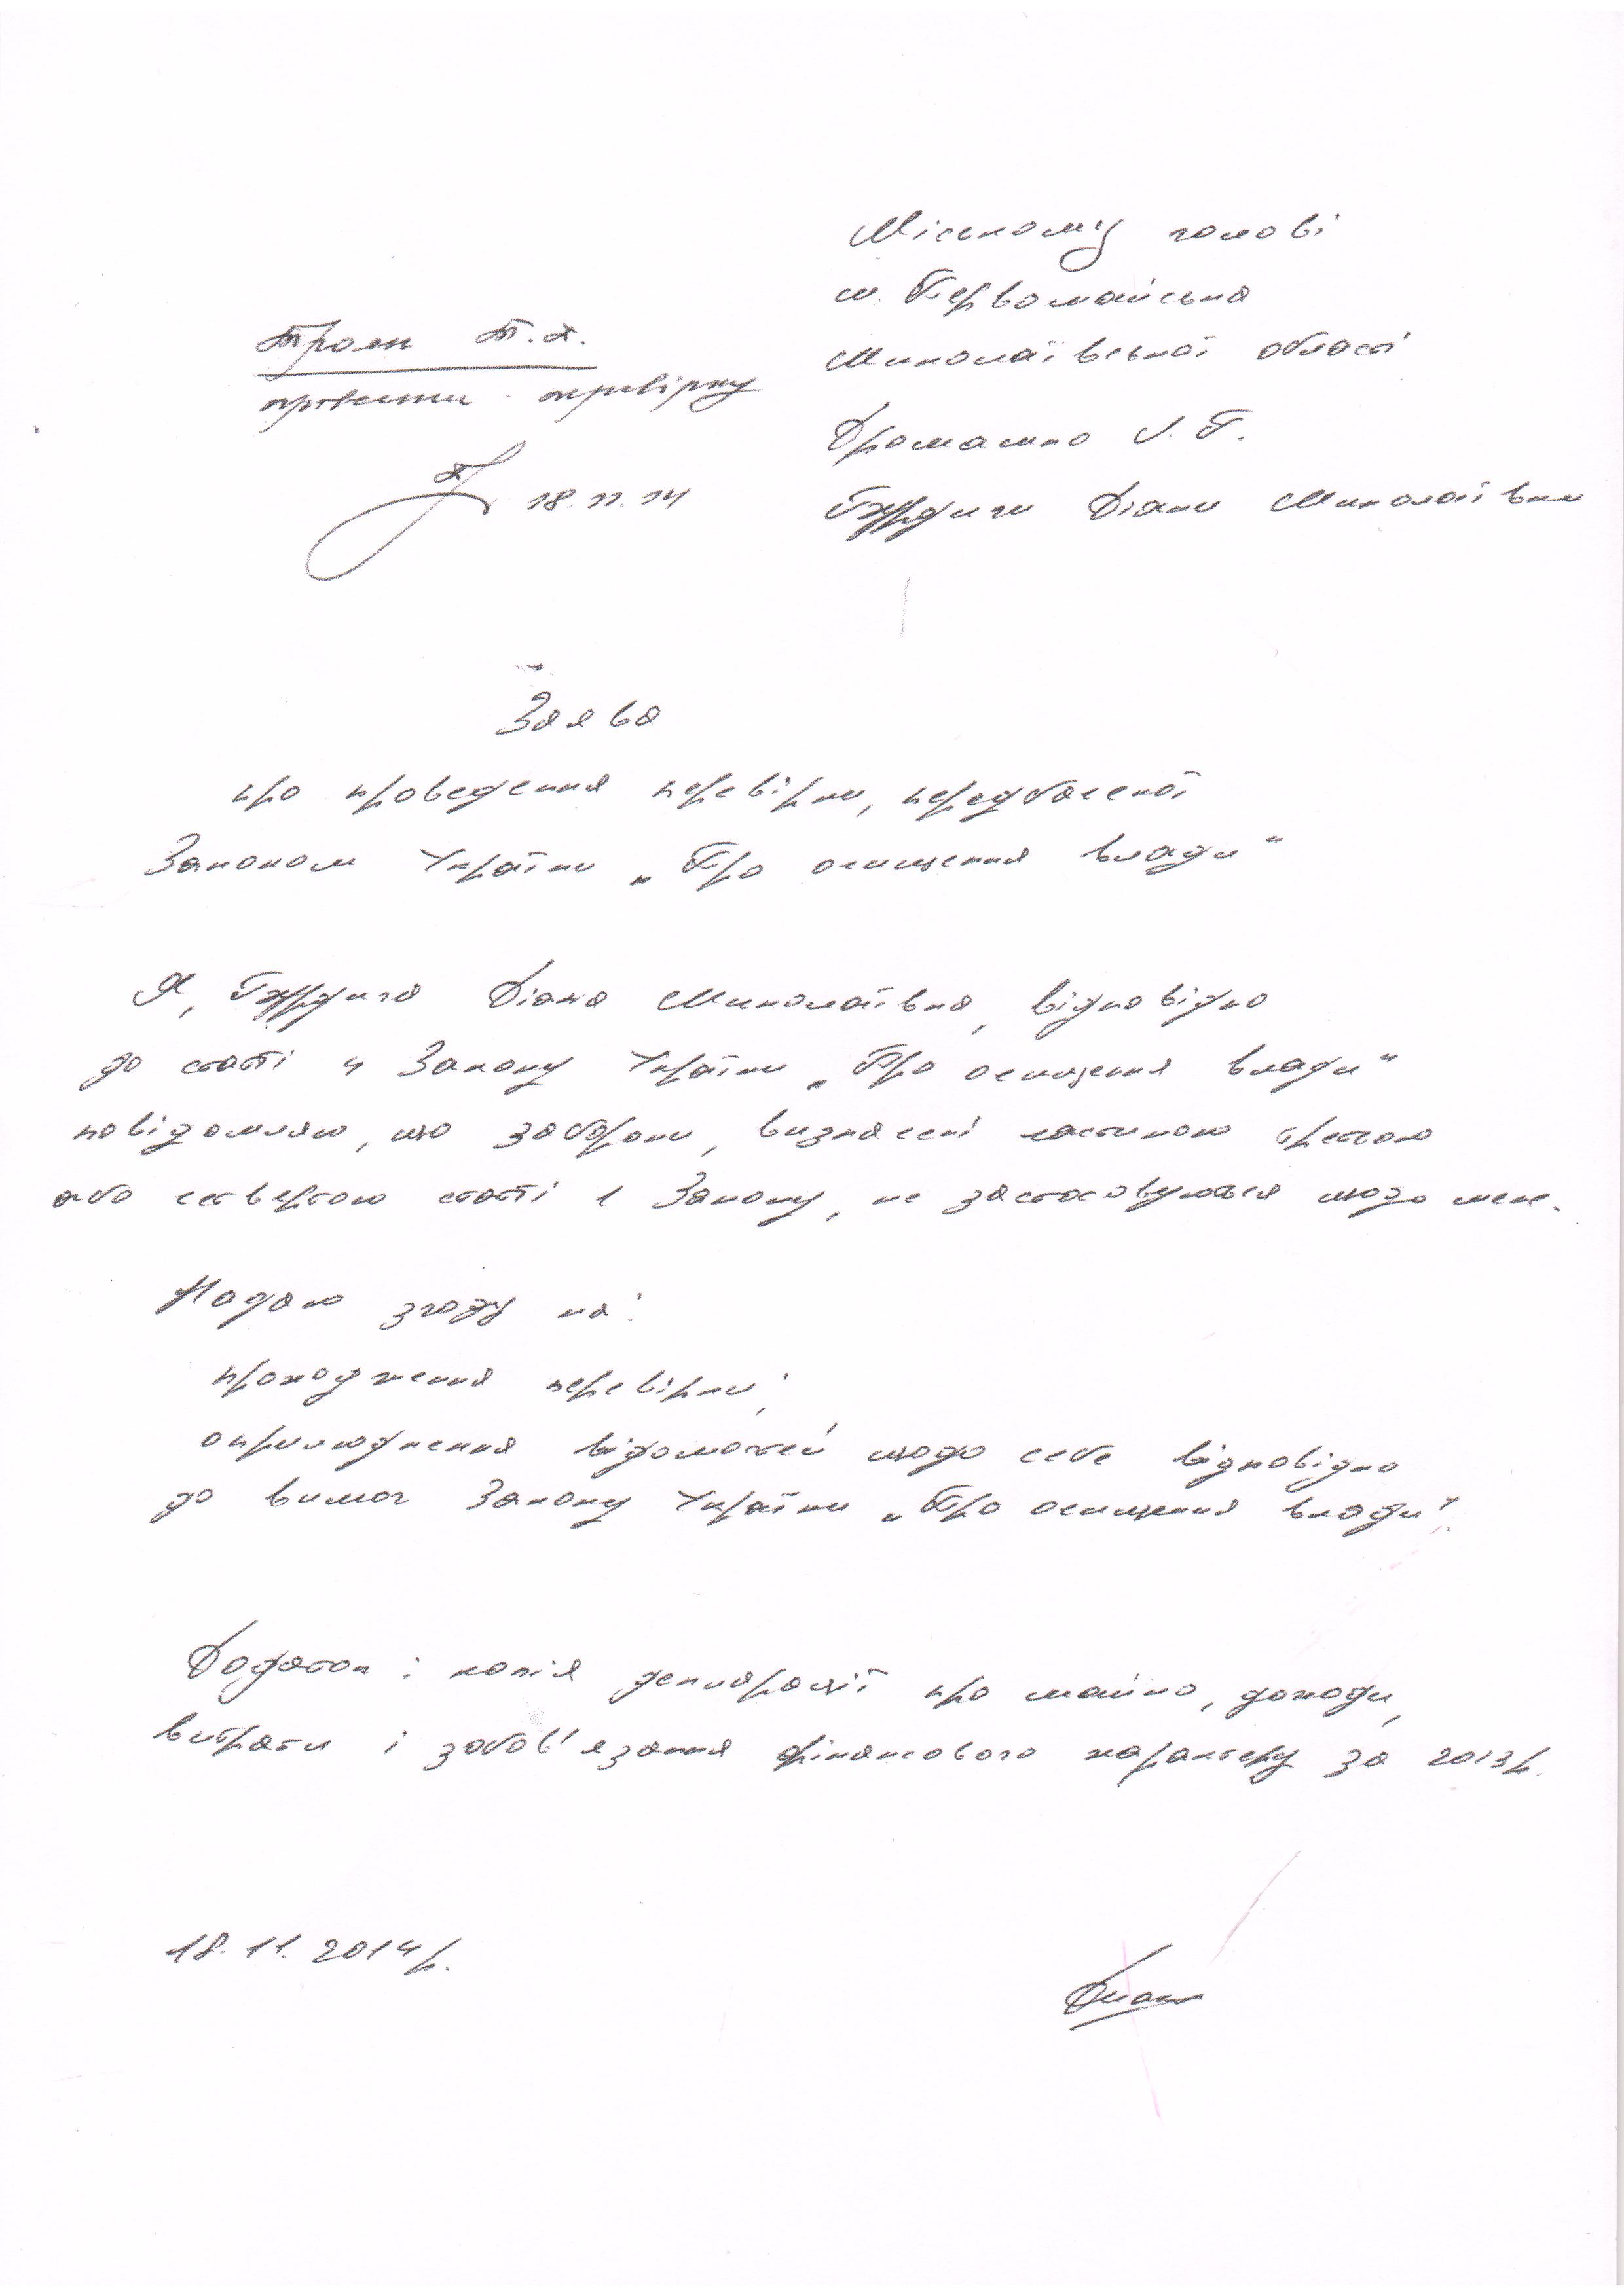 Міському голові
м. Первомайська
Миколаївської області
Дромашко Л. Г.
Діани Миколаївни
Т. А.
провести перевірку
18.11.14
Заява
про проведення перевірки, передбаченої
Законом України „Про очищення влади“
Я, Діана Миколаївна, відповідно
до статті 4 Закону України „Про очищення влади“
повідомляю, що заборони, визначені частиною третьою
або четвертою статті 1 Закону, не застосовуються щодо мене.
Надаю згоду на:
проходження перевірки;
оприлюднення відомостей щодо себе відповідно
до вимог Закону України „Про очищення влади“.
Додаток: копія декларації про майно, доходи,
витрати і зобов'язання фінансового характеру за 2013р.
18.11.2014р.